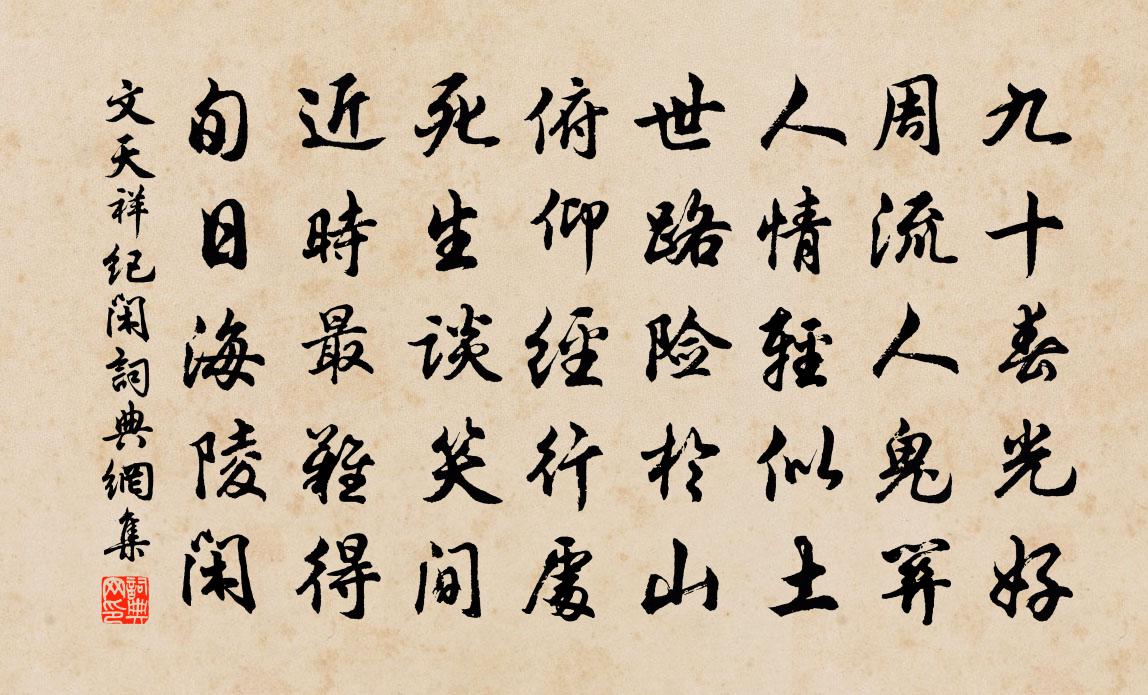 九十春光好
周流人鬼関
人情輕似土
世路险於山
俯仰經行處
死生谈笑间
近時最難得
旬日海陵闲
文天祥纪闲詞典網集
詞典
网印